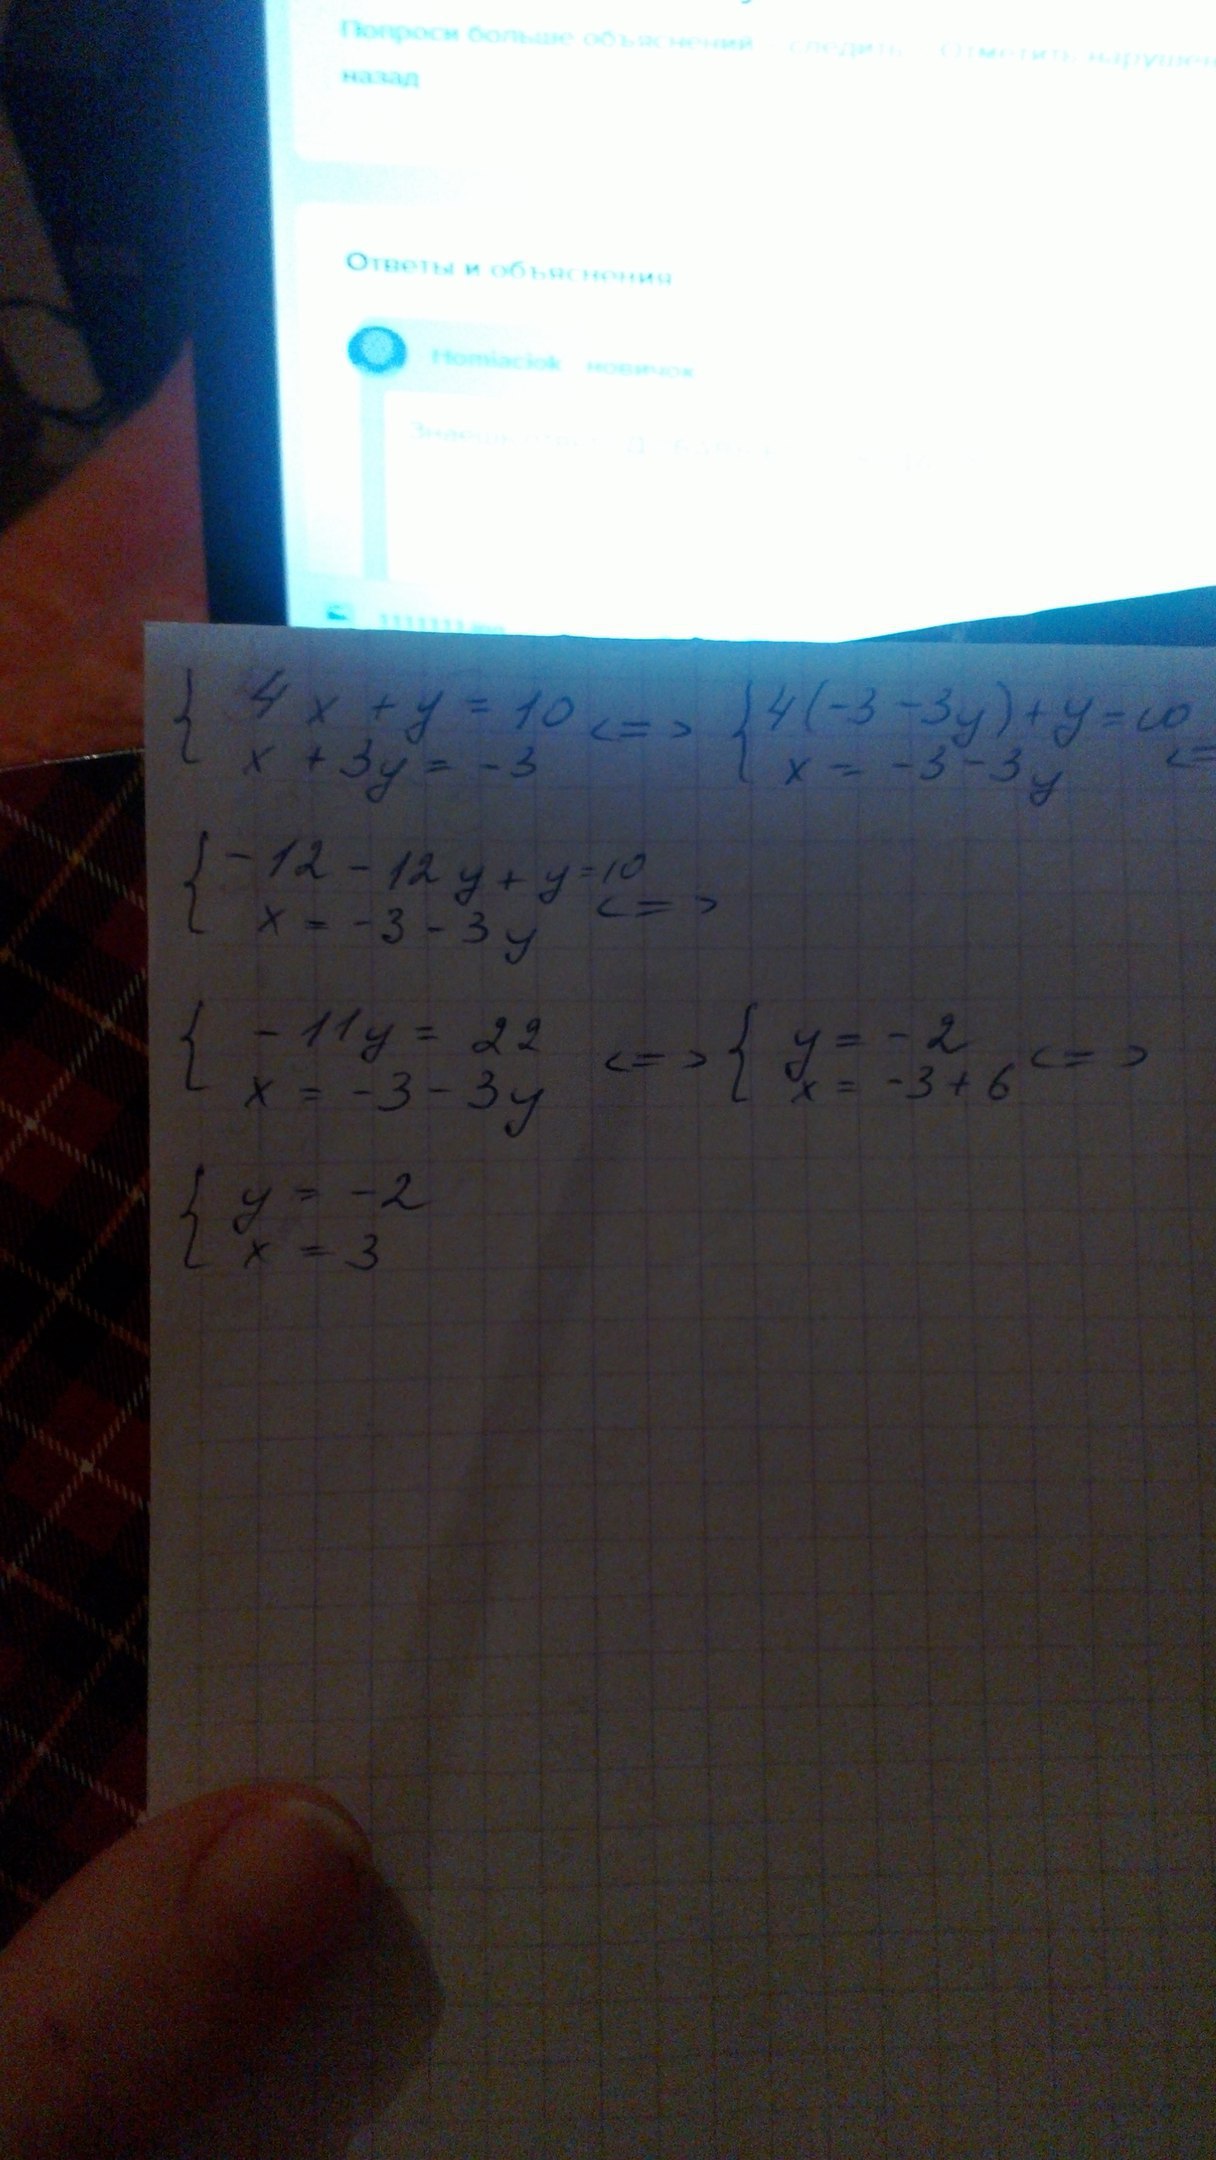 Попроси больше объяснений следить Отметить нарушен
назад
Ответы и объяснения
Homiaciok новичок
{ 4x + y = 10 <=> { 4(-3 -3y) + y = 10
x + 3y = -3 x = -3 - 3y <=
{ -12 - 12y + y = 10
x = -3 - 3y <=>
{ -11y = 22 <=> { y = -2 <=>
x = -3 - 3y x = -3 + 6
{ y = -2
x = 3